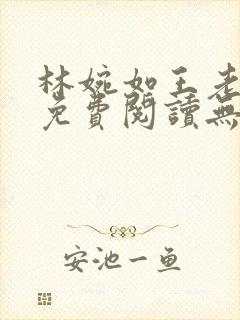 林婉如王老
免費閱讀無
安池一魚